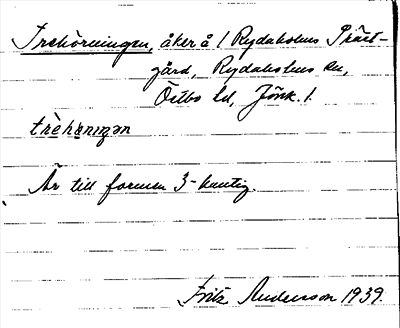 Trehörningen, åker å 1 Rydaholms Präst-
gård, Rydaholms sn,
Östbo hd, Jönk. l.
trèhæ̀nıŋən
Är till formen 3-kantig.
Fritz Anderson 1939.